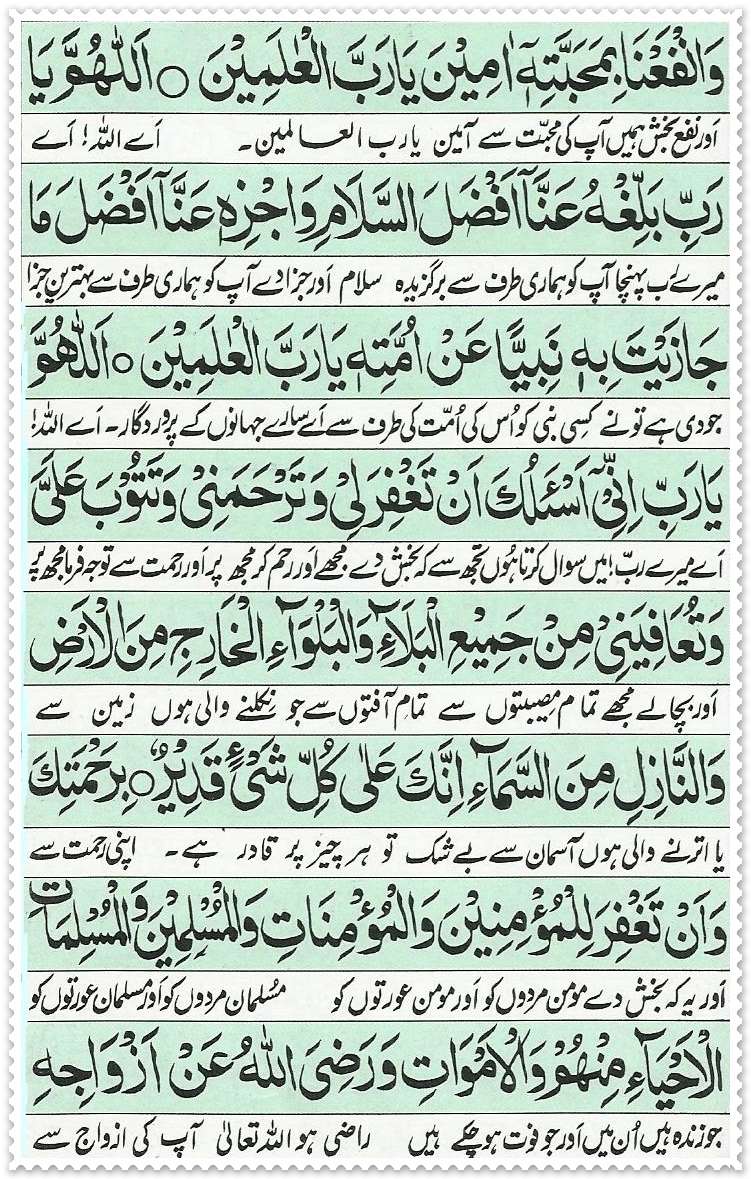 وَانْفَعْنَا بِمَحَبَّتِهٖٓ اٰمِیْنَ یَارَبَّ الْعٰلَمِیْنَ ○ اَللّٰهُمَّ یَا
اَور نفع بخش ہمیں آپ کی محبّت سے آمین یارب العالمین۔ اَے اللہ! اَے
رَبِّ بَلِّغْهُ عَنَّآ اَفْضَلَ السَّلَامِ وَاجْزِهٖ عَنَّآ اَفْضَلَ مَا
میرے رب پہنچا آپ کو ہماری طرف سے برگزیدہ سلام اَور جزا دے آپ کو ہماری طرف سے بہترین جزا
جَازَیْتَ بِهٖ نَبِیًّا عَنْ اُمَّتِهٖ یَارَبَّ الْعٰلَمِیْنَ ○ اَللّٰهُمَّ
جو دی ہے تو نے کسِی نبی کو اُس کی اُمّت کی طرف سے اَے سارے جہانوں کے پروردگار۔ اَے اللہ!
یَارَبِّ اِنِّیْٓ اَسْئَلُكَ اَنْ تَغْفِرَلِیْ وَتَرْحَمَنِیْ وَتَتُوْبَ عَلَیَّ
اَے میرے ربّ! میں سوال کرتا ہُوں تجھ سے کہ بخش دے مجھے اَور رحم کر مجھ پر اَور رحمت سے توجہ فرما مجھ پر
وَتُعَافِیَنِیْ مِنْ جَمِیْعِ الْبَلَآءِ وَالْبَلْوَآءِ الْخَارِجِ مِنَ الْاَرْضِ
اَور بچالے مجھے تمام مصیبتوں سے تمام آفتوں سے جو نِکلنے والی ہوں زمین سے
وَالنَّازِلِ مِنَ السَّمَآءِ اِنَّكَ عَلٰی كُلِّ شَیْءٍ قَدِیْرٌ ○ بِرَحْمَتِكَ
یا اترنے والی ہوں آسمان سے بے شک تو ہر چیز پر قادر ہے۔ اپنی رحمت سے
وَاَنْ تَغْفِرَ لِلْمُؤْمِنِیْنَ وَالْمُؤْمِنَاتِ وَالْمُسْلِمِیْنَ وَالْمُسْلِمَاتِ
اَور یہ کہ بخش دے مومن مردوں کو اَور مومن عورتوں کو مسُلمان مردوں کو اَور مسلمان عورتوں کو
الْاَحْیَآءِ مِنْهُمْ وَالْاَمْوَاتِ وَرَضِیَ اللّٰهُ عَنْ اَزْوَاجِهِ
جو زندہ ہیں اُن میں اَور جو فوت ہو چکے ہیں راضی ہو اللہ تعالیٰ آپ کی ازواج سے